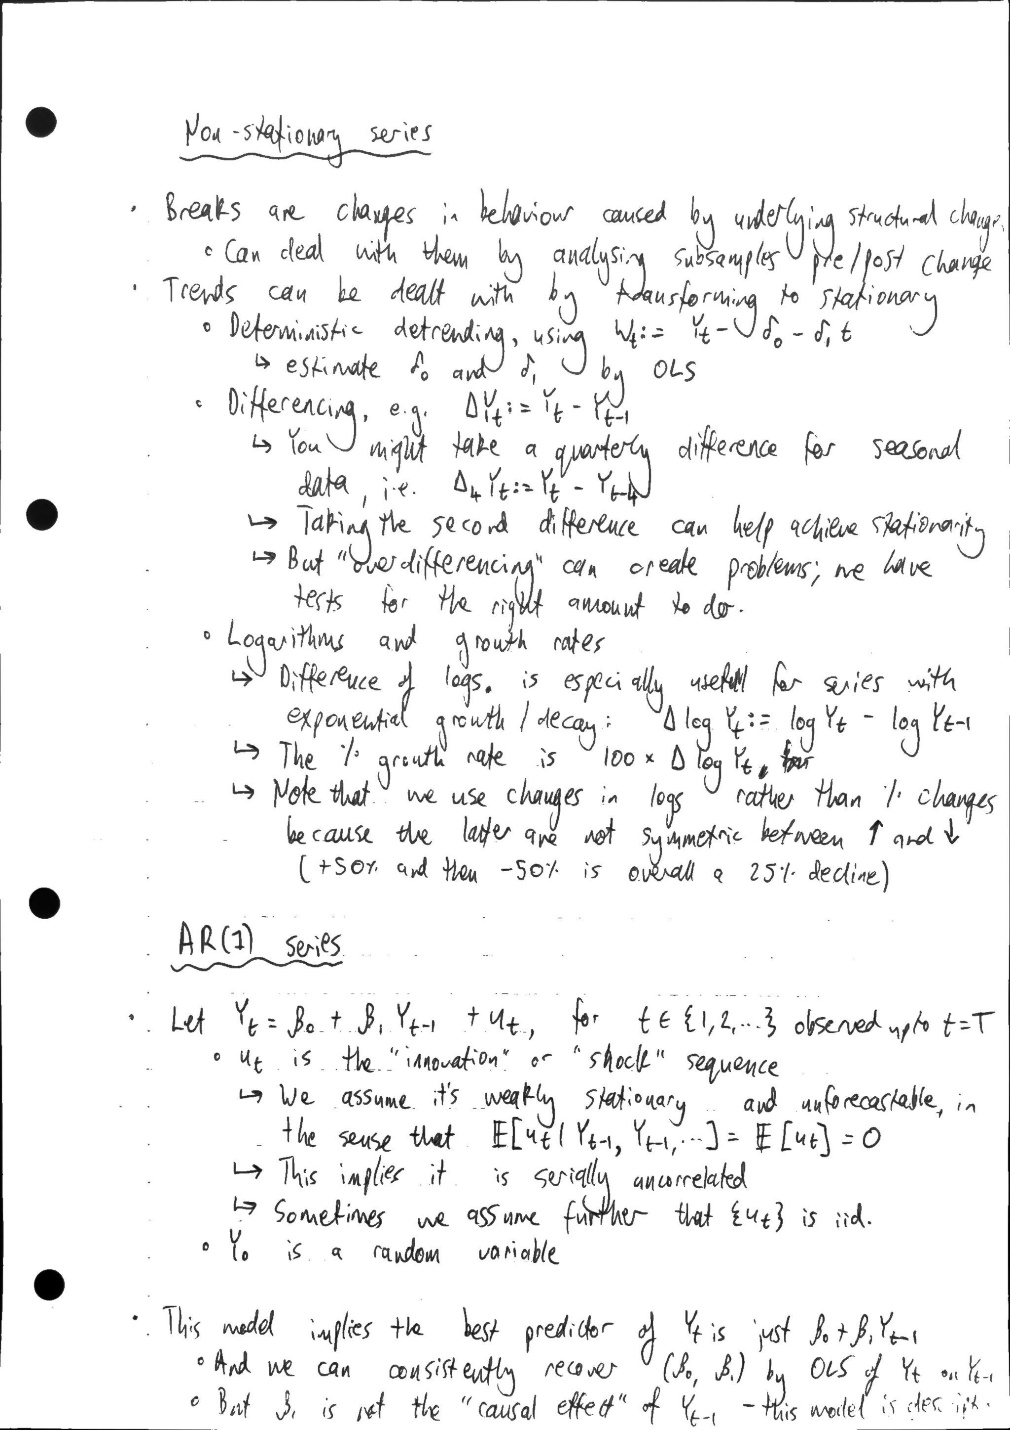 Non-stationary series
· Breaks are changes in behaviour caused by underlying structural change.
∘ Can deal with them by analysing subsamples pre/post change
· Trends can be dealt with by transforming to stationary
∘ Deterministic detrending, using Wₜ := Yₜ - δ₀ - δ₁t
↳ estimate δ₀ and δ₁ by OLS
∘ Differencing, e.g. ΔYₜ := Yₜ - Yₜ₋₁
↳ You might take a quarterly difference for seasonal
data, i.e. Δ₄Yₜ := Yₜ - Yₜ₋₄
↳ Taking the second difference can help achieve stationarity
↳ But "overdifferencing" can create problems; we have
tests for the right amount to do.
∘ Logarithms and growth rates
↳ Difference of logs. is especially usefull for series with
exponential growth / decay: Δ log Yₜ := log Yₜ - log Yₜ₋₁
↳ The % growth rate is 100 × Δ log Yₜ
↳ Note that we use changes in logs rather than % changes
because the latter are not symmetric between ↑ and ↓
(+50% and then -50% is overall a 25% decline)
AR(1) series
· Let Yₜ = β₀ + β₁Yₜ₋₁ + uₜ, for t ∈ {1,2,...} observed up to t=T
∘ uₜ is the "innovation" or "shock" sequence
↳ We assume it's weakly stationary and unforecastable, in
the sense that 𝔼[uₜ | Yₜ₋₁, Yₜ₋₁, ...] = 𝔼[uₜ] = 0
↳ This implies it is serially uncorrelated
↳ Sometimes we assume further that {uₜ} is iid.
∘ Y₀ is a random variable
· This model implies the best predictor of Yₜ is just β₀ + β₁Yₜ₋₁
∘ And we can consistently recover (β₀, β₁) by OLS of Yₜ on Yₜ₋₁
∘ But β₁ is not the "causal effect" of Yₜ₋₁ - this model is